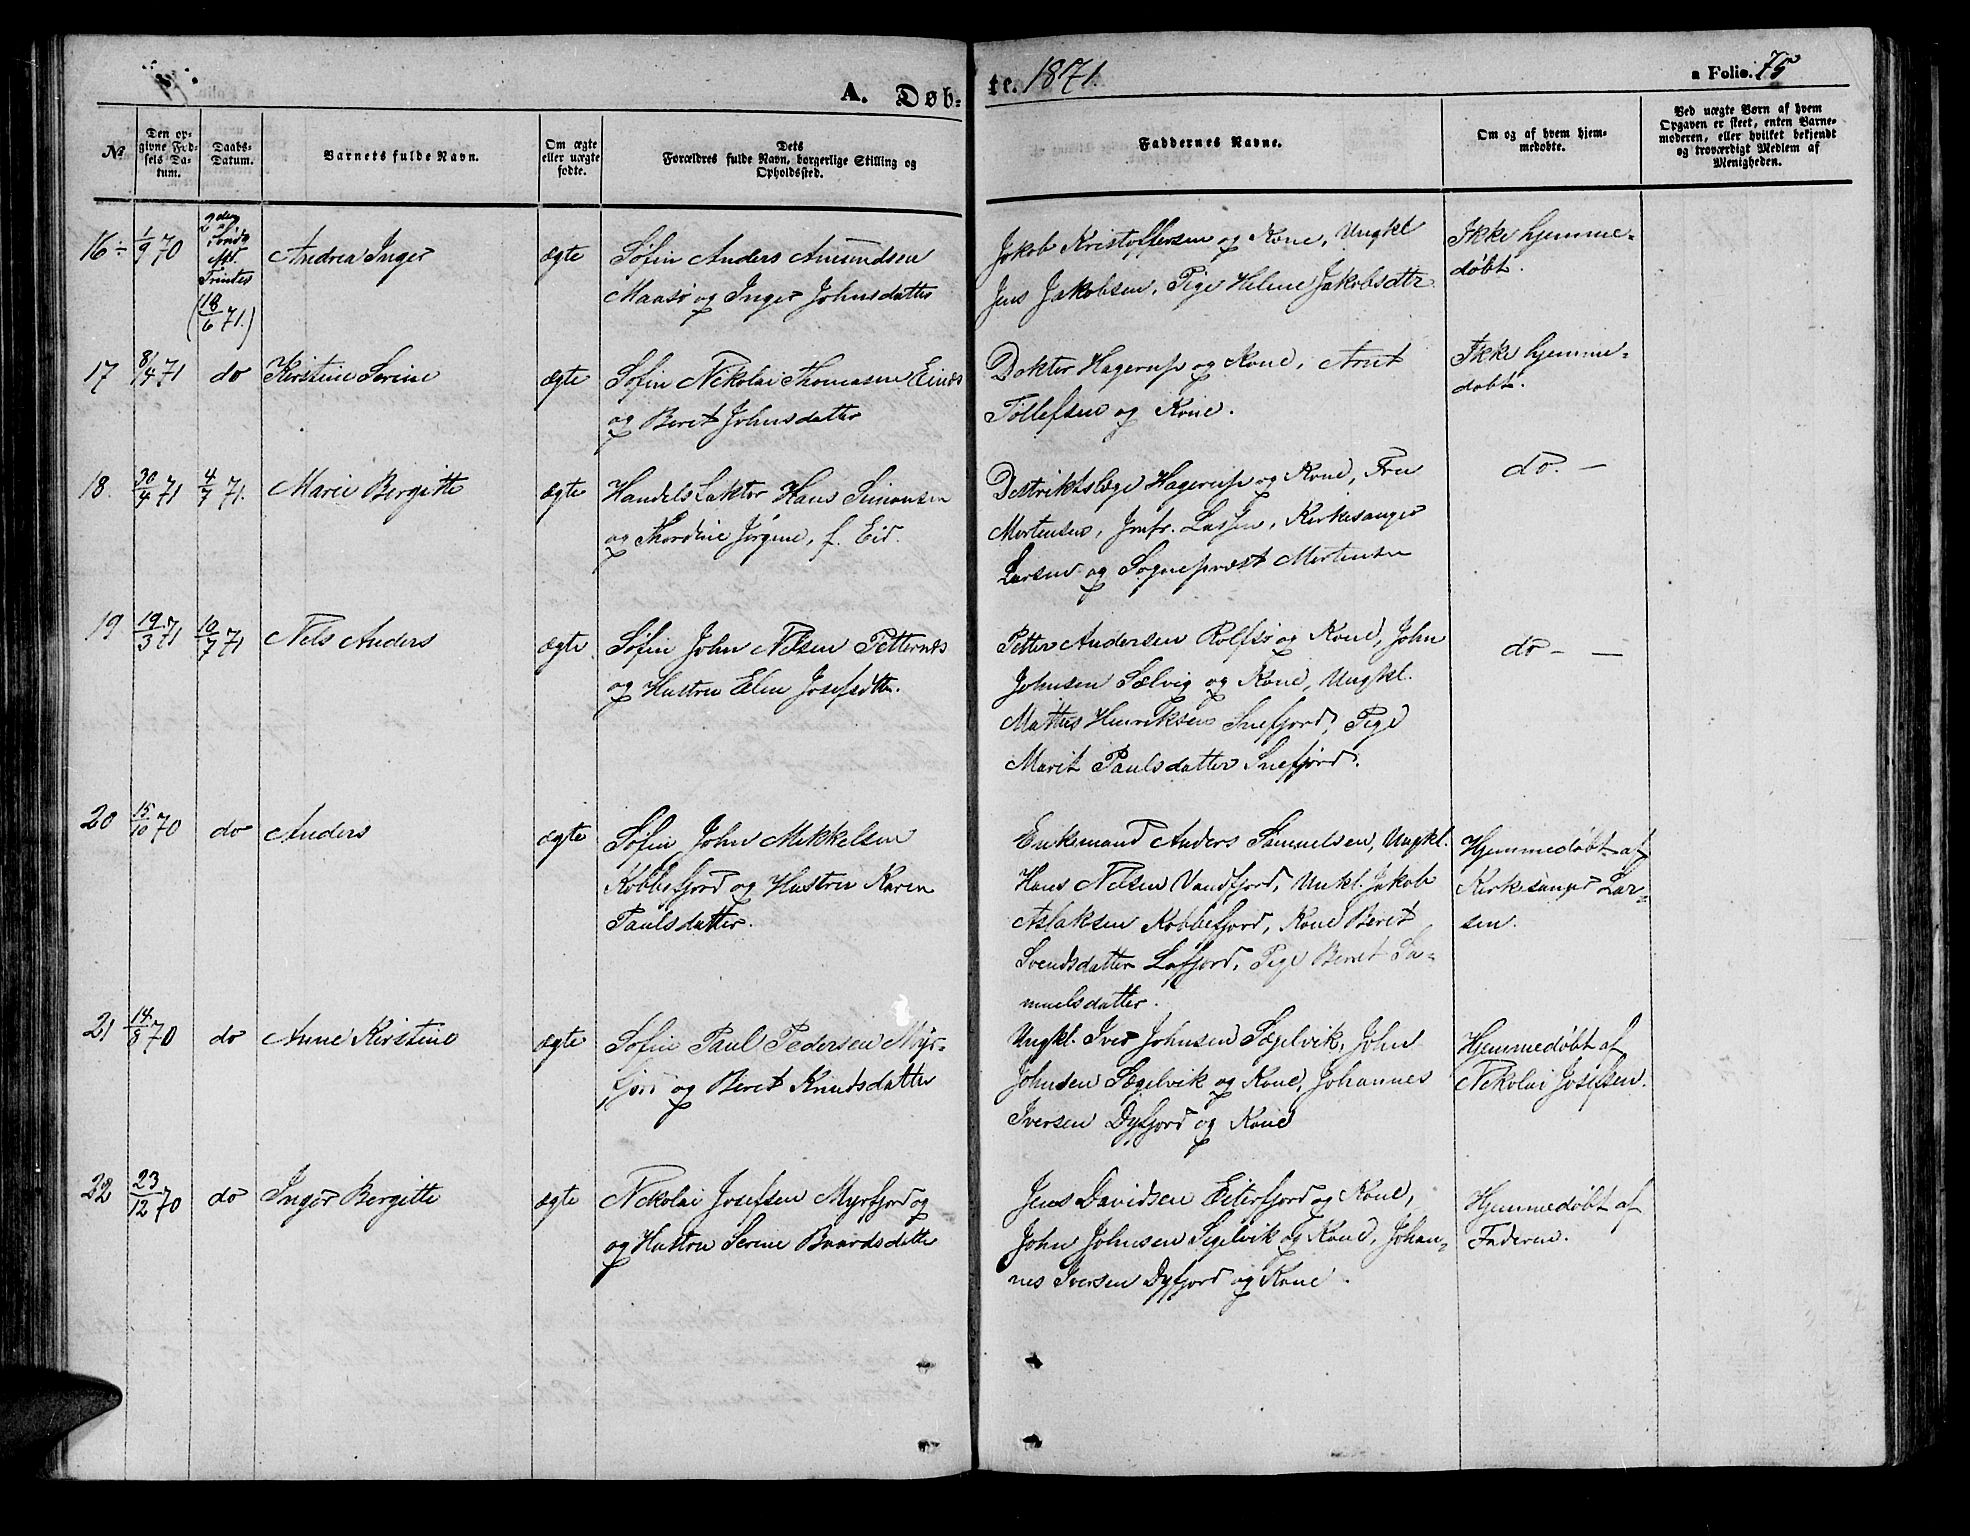 A. Døb-
te. 1871.
a Folio. 75
№
Den op-
givne Fød-
sels Da-
tum.
Daabs-
Datum.
Barnets fulde Navn.
Om ægte
eller uægte
fødte.
Dets
Forældres fulde Navn, borgerlige Stilling og
Opholdssted.
Faddernes Navne.
Om og af hvem hjem-
medøbte.
Ved uægte Børn af hvem
Opgaven er skeet, enten Barne-
moderen, eller hvilket bekjendt
og troværdigt Medlem af
Menigheden.
16 1/9 70
2den
Sønd.
eft.
Trinites
(18/6 71.)
Andrea Inger
ægte
Søfin Anders Amundsen
Maasø og Inger Johnsdatter
Jakob Kristoffersen og Kone, Ungkl
Jens Jakobsen, Pige Helene Jakobsdtr
Ikke hjemme-
døbt.
17 8/4 71 do Kirstine Serine
ægte
Søfin Nikolai Thomasen
og Beret Johnsdatter
Dokter Hagerup og Kone, Arnt
Tollefsen og Kone.
Ikke hjemme-
døbt.
18. 30/4 71 4/7 71. Marie Bergitte
ægte
Handelsfaktor Hans Simonsen
og Thordine Jørgine, f. Eid.
Destriktslæge Hagerup og Kone, Fru
Mortensen, Jmfr. Kirkesanger
Larsen og Sognepræst Mortensen
do. —
19 19/3 71 10/7 71 Nels Anders
ægte
Søfin John Nelsen Petternes
og Hustru Elen Josefsdtter.
Petter Andersen Rolfsø og Kone, John
Johnsen Sælvig og Kone, Ungkl.
Mathis Henriksen Snefjord, Pige
Marit Paulsdatter Snefjord.
do — —
20 15/10 70 do Anders
ægte
Søfin John Mikkelsen
Kobbefjord og Hustru Karen
Paulsdatter.
Enkemand Anders Samuelsen, Ungkl.
Hans Nelsen Vandfjord, Unkl. Jakob
Aslaksen Kobbefjord, Kone Beret
Svendsdatter Lafjord, Pige Beret Sa-
muelsdatter.
Hjemmedøbt af
Kirkesanger Lar-
sen.
21 14/8 70 do Anne Kirstine
ægte
Søfin Paul Pedersen Myr-
fjord og Beret Knudsdatter
Ungkl. Iver Johnsen Sægelvik, John
Johnsen Sægelvik og Kone, Johannes
Iversen Dyfjord og Kone
Hjemmedøbt af
Nekolai Josefsen.
22 23/12 70 do Inger Bergitte
ægte
Nekolai Josefsen Myrfjord og
og Hustru Serine Baardsdatter
Jens Davidsen Eiterfjord og Kone,
John Johnsen Segelvik og Kone, Johan-
nes Iversen Dyfjord og Kone.
Hjemmedøbt af
Faderen.